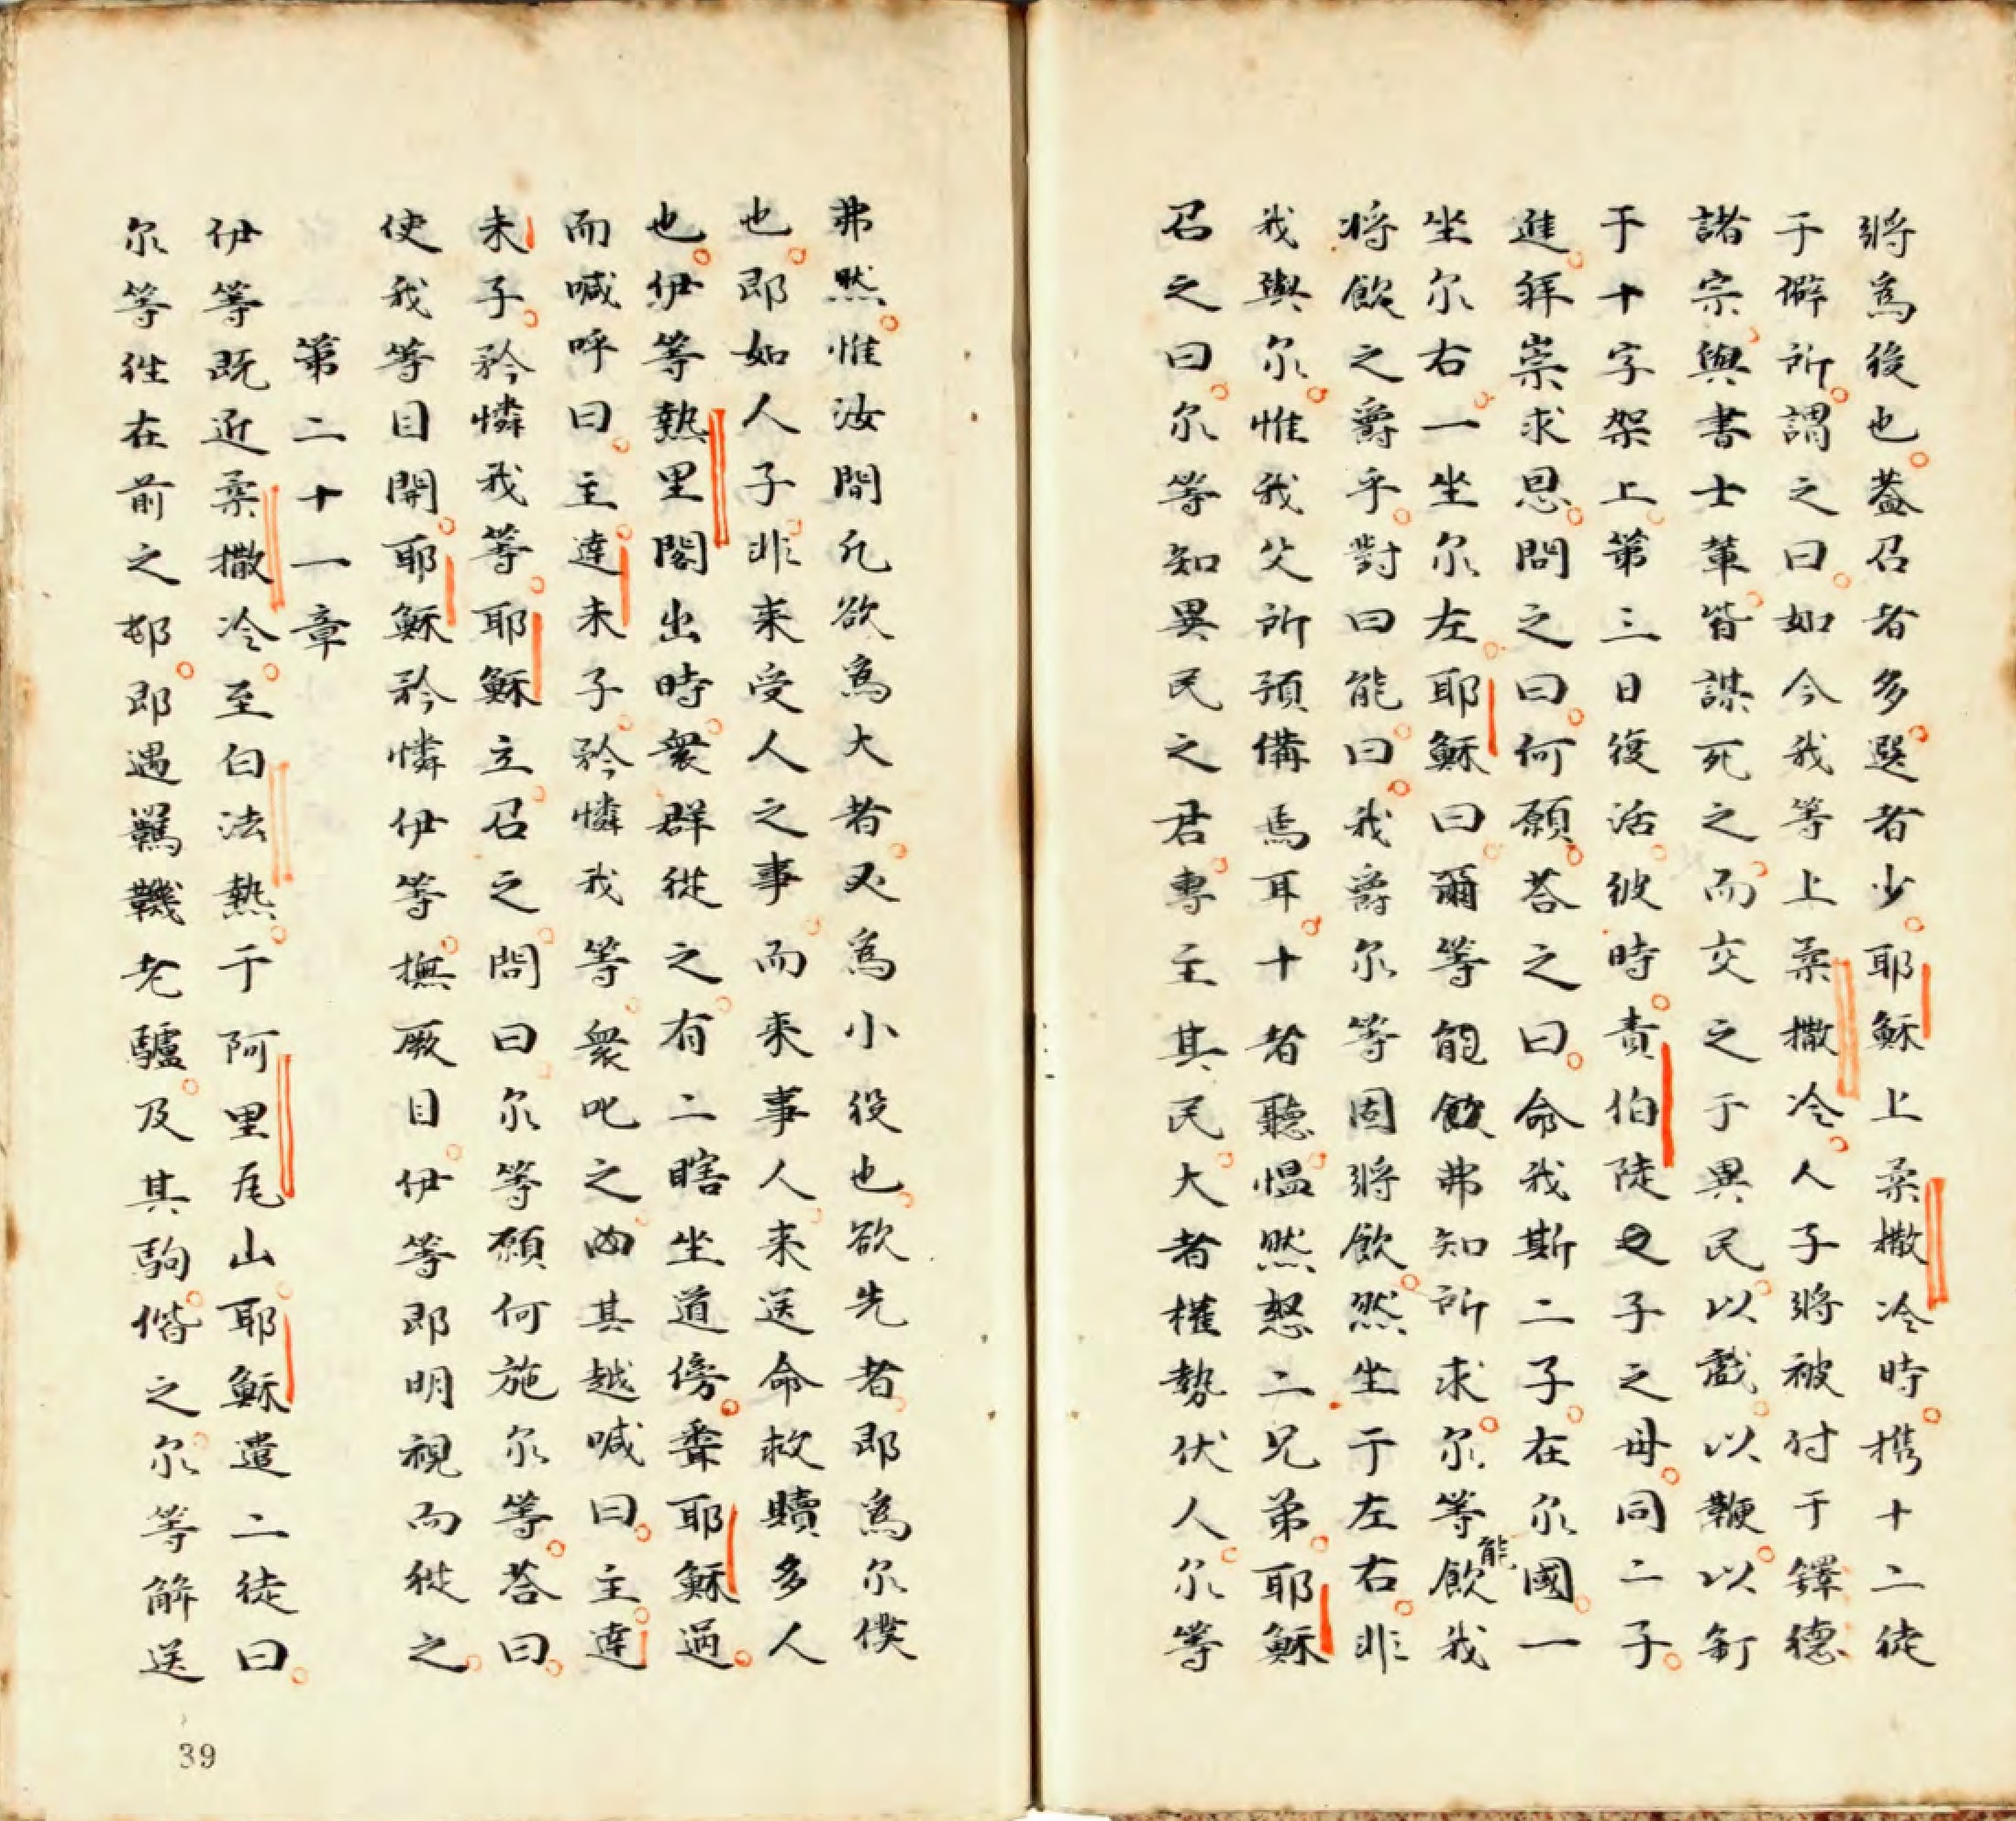 將為後也。葢召者多。選者少。耶穌上柔撒冷時。携十二徒
于僻所。謂之曰。如今我等上柔撒冷。人子將被付于鐸德
諸宗、與書士輩。皆謀死之。而交之于異民。以戲。以鞭。以釘
于十字架上。第三日復活。彼時。責伯陡之子之母。同二子。
進。拜崇求恩。問之曰。何願。荅之曰。命我斯二子。在尔國。一
坐尔右。一坐尔左。耶穌曰。爾等能飲弗知所求。尔等能飲我
將飲之爵乎。對曰能。曰。我爵尔等固將飲。然坐于左右。非
我與尔。惟我父所預備焉耳。十者聽。愠然怒二兄弟。耶穌
召之曰。尔等知異民之君。專主其民。大者權勢伏人。尔等
弗然。惟汝間凡欲為大者。又為小役也。欲先者。即為尔僕
也。即如人子。非來受人之事。而來事人。來送命救贖多人
也。伊等熱里閣出時。衆群從之。有二瞎坐道傍。聞耶穌過。
而喊呼曰。主。達未子。矜憐我等。衆叱之。而其越喊曰。主。達
未子。矜憐我等。耶穌立。召之。問曰。尔等願何施尔等。荅曰。
使我等目開。耶穌矜憐伊等。撫厥目。伊等即明視而從之。
第二十一章
伊等既近柔撒冷。至白法熱。于阿里瓦山。耶穌遣二徒曰。
尔等徃在前之邨。即遇羈韈老驢。及其駒。偕之。尔等解送
39